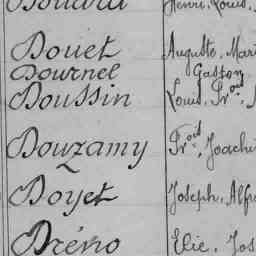 Douard Henri, Louis,
Douet Auguste, Mari
Dournel Gaston
Doussin Louis, Frois,
Douzamy Frois, Joachi
Doyet Joseph, Alfr
Dréno Elie, Jos